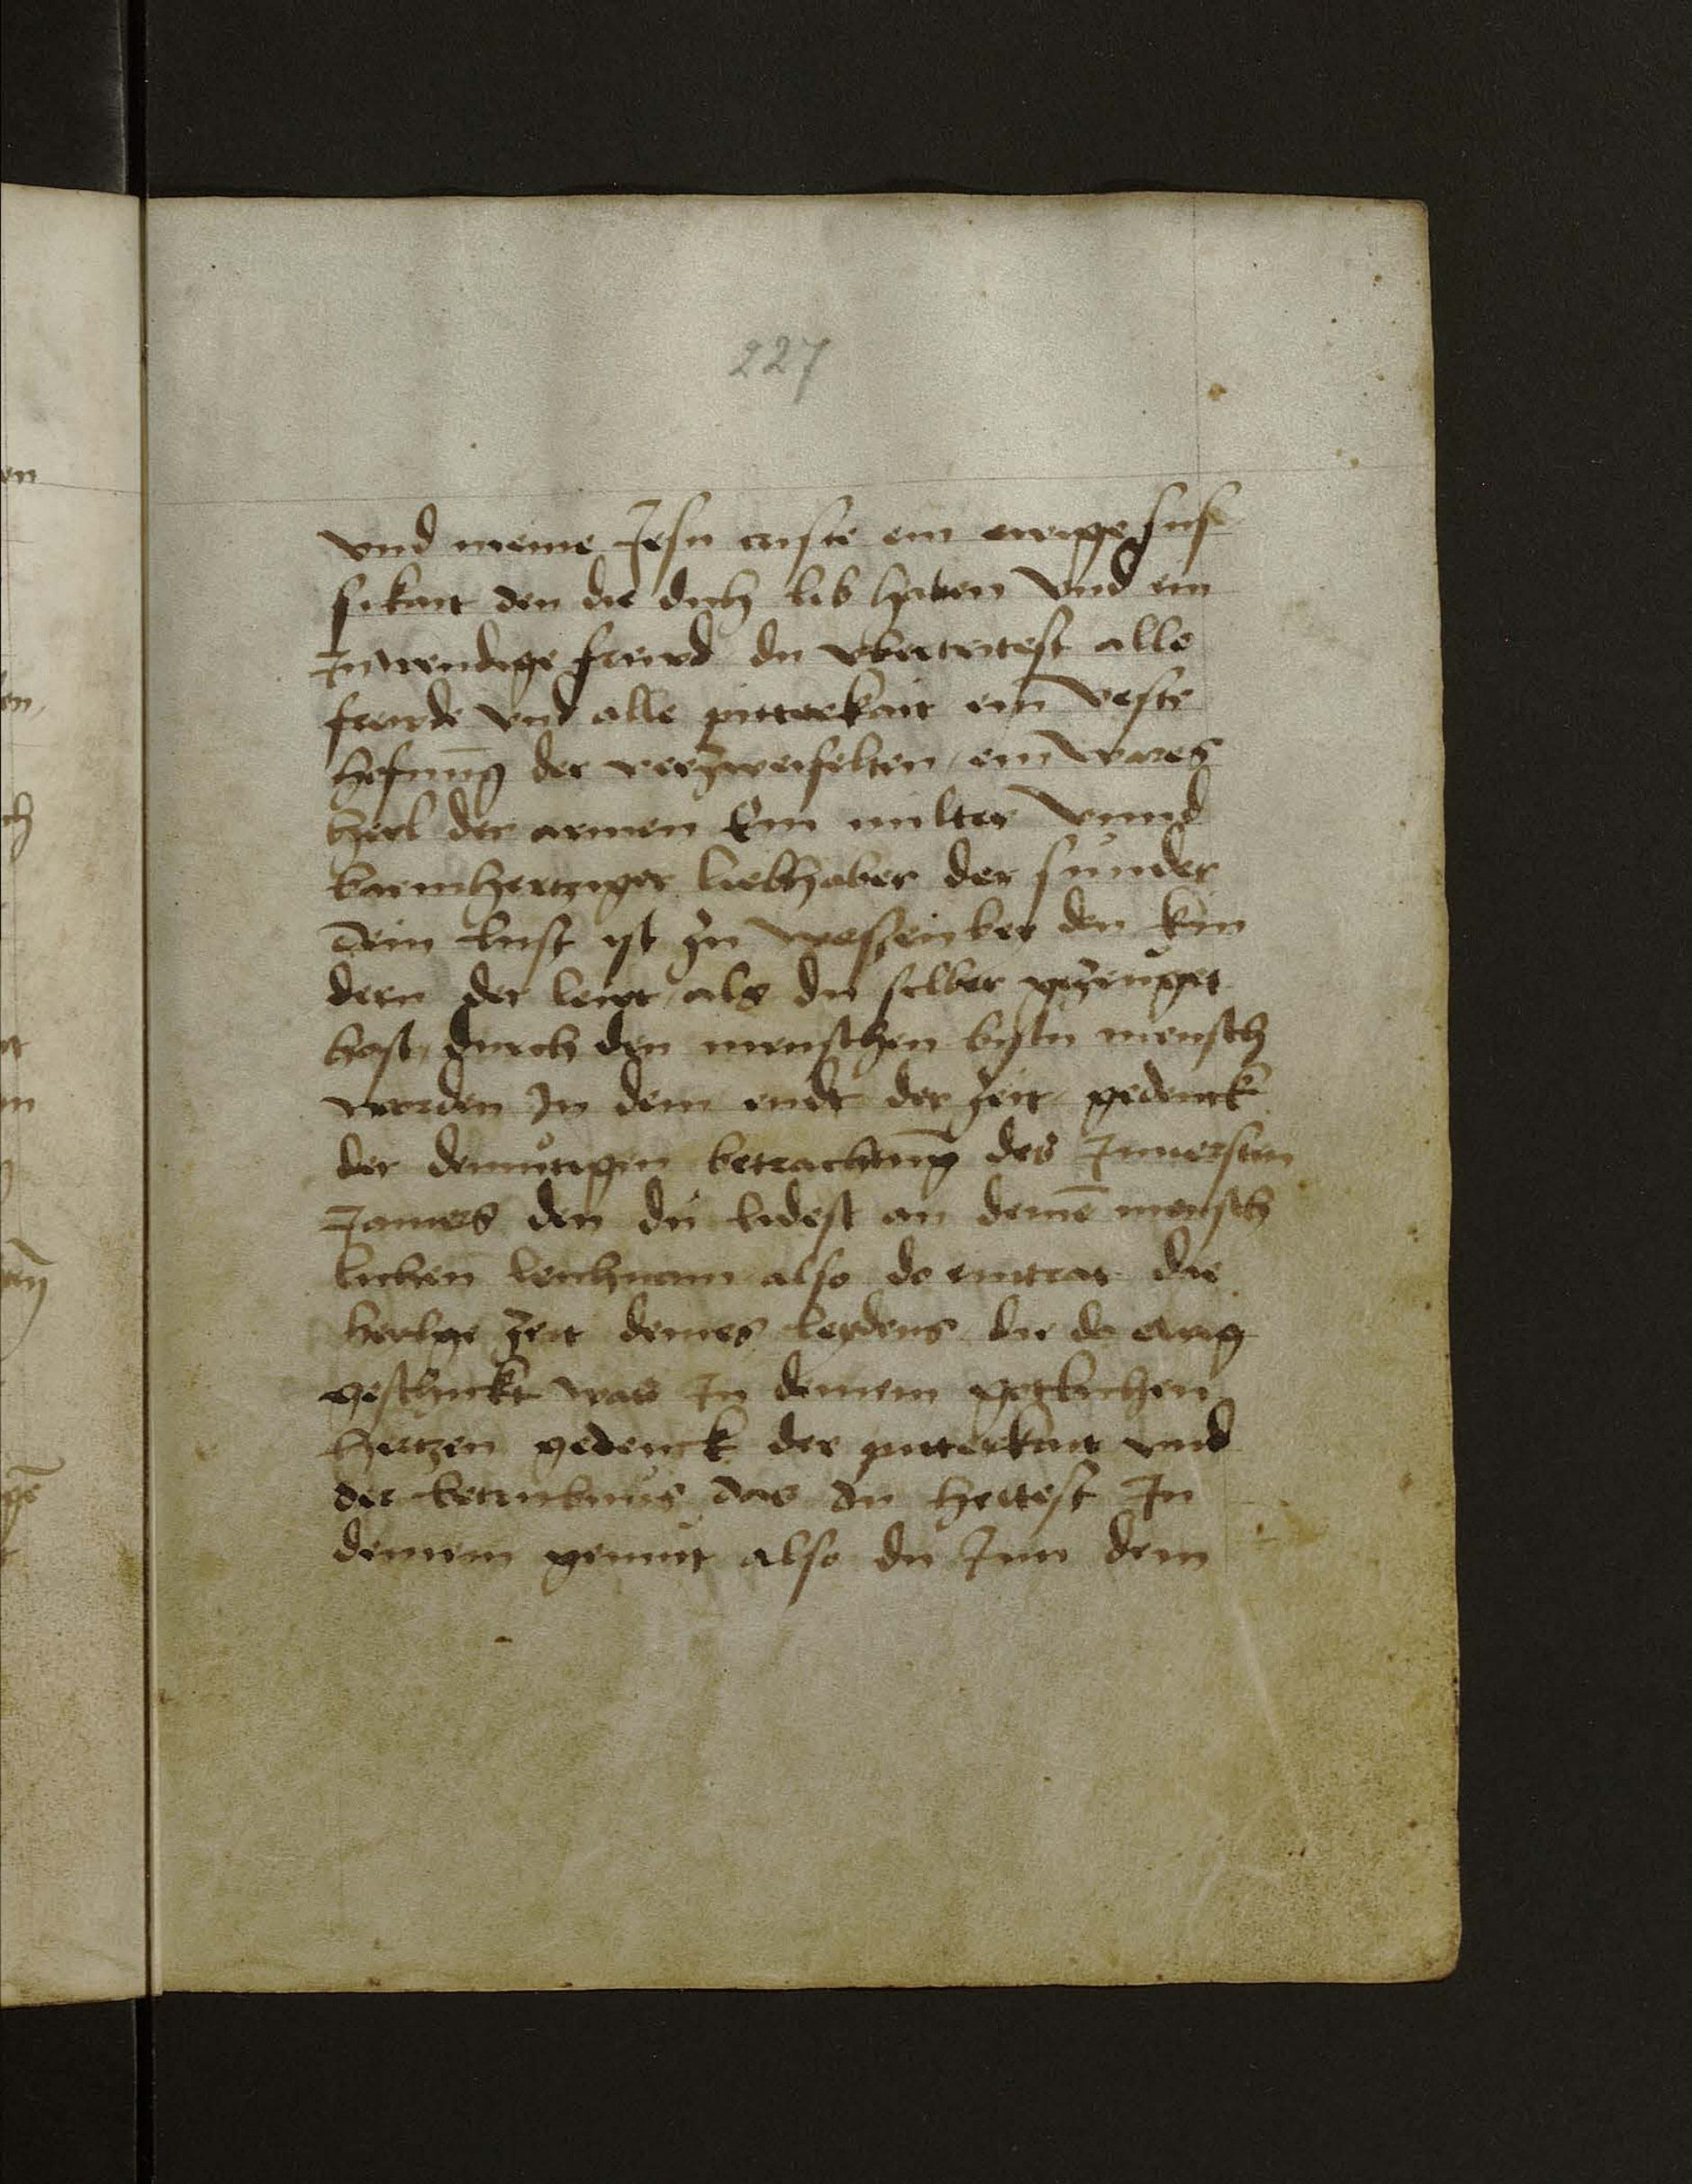 227
vnd meine Jesu criste ein ewige sus
sikait den die dich lib haben vnd ein
Jnwendige freud du vbertritest alle
freude vnd alle pitterkait ein veste
hofnūg der verzweifelten ein wares
heil der armen Ein milter vnnd
barmhertziger liebhaber der sunder
dein lust yst zu den kin
dern der leut als du selber gezeuget
hast durch den menschen bistu mensch
worden Jn dem endt der zeit gedenck
der demutigen betrachtūg des Jnnersten
Jamers den du lidest an deinē mensch
lichen leichnam also do eintrat die
heilge zeit deines leydens die do ewig
geschickt was Jn deinem gotlichen
hertzen gedenck der pitterkait vnd
der betrubnus das du hettest Jn
deinem gemut also du Jnn dem